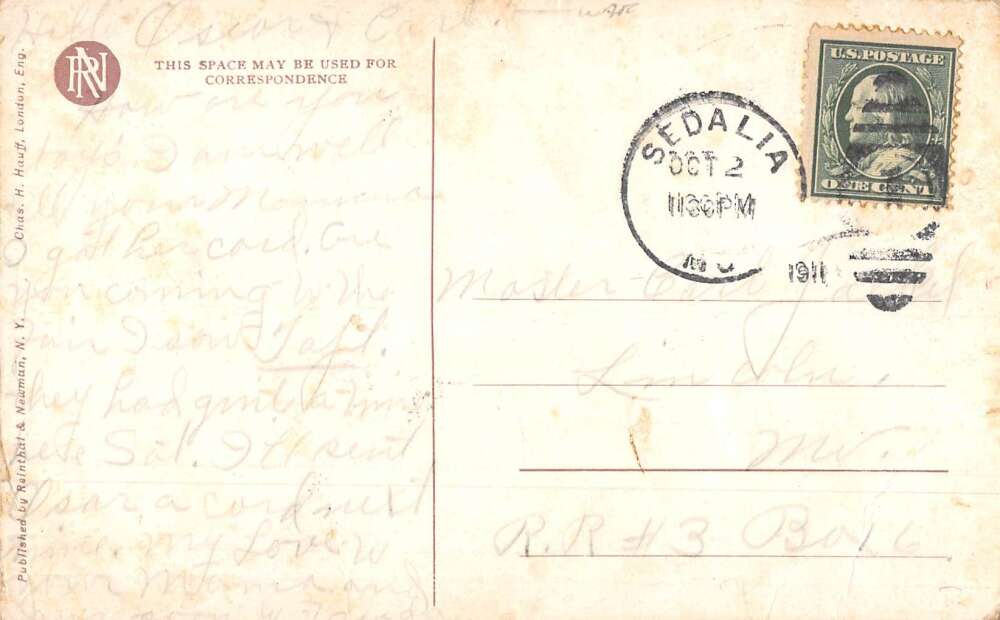 Hello Oscar & Carl.
THIS SPACE MAY BE USED FOR
CORRESPONDENCE
How are you
boys. I am well
Tell your Mamma
I got her card. Are
you coming to the
Fair I saw Taft.
They had quite a time
here Sat. I'll send
Oscar a card next
time. My Love to
your Mama and
RN
Chas. H. Hauff, London, Eng.
Published by Reinthal & Newman, N. Y.
SEDALIA
OCT 2
1130PM
MO
1911
U.S. POSTAGE
ONE CENT
Master Carl
Lincoln,
Mo.
R.R #3 Box 6